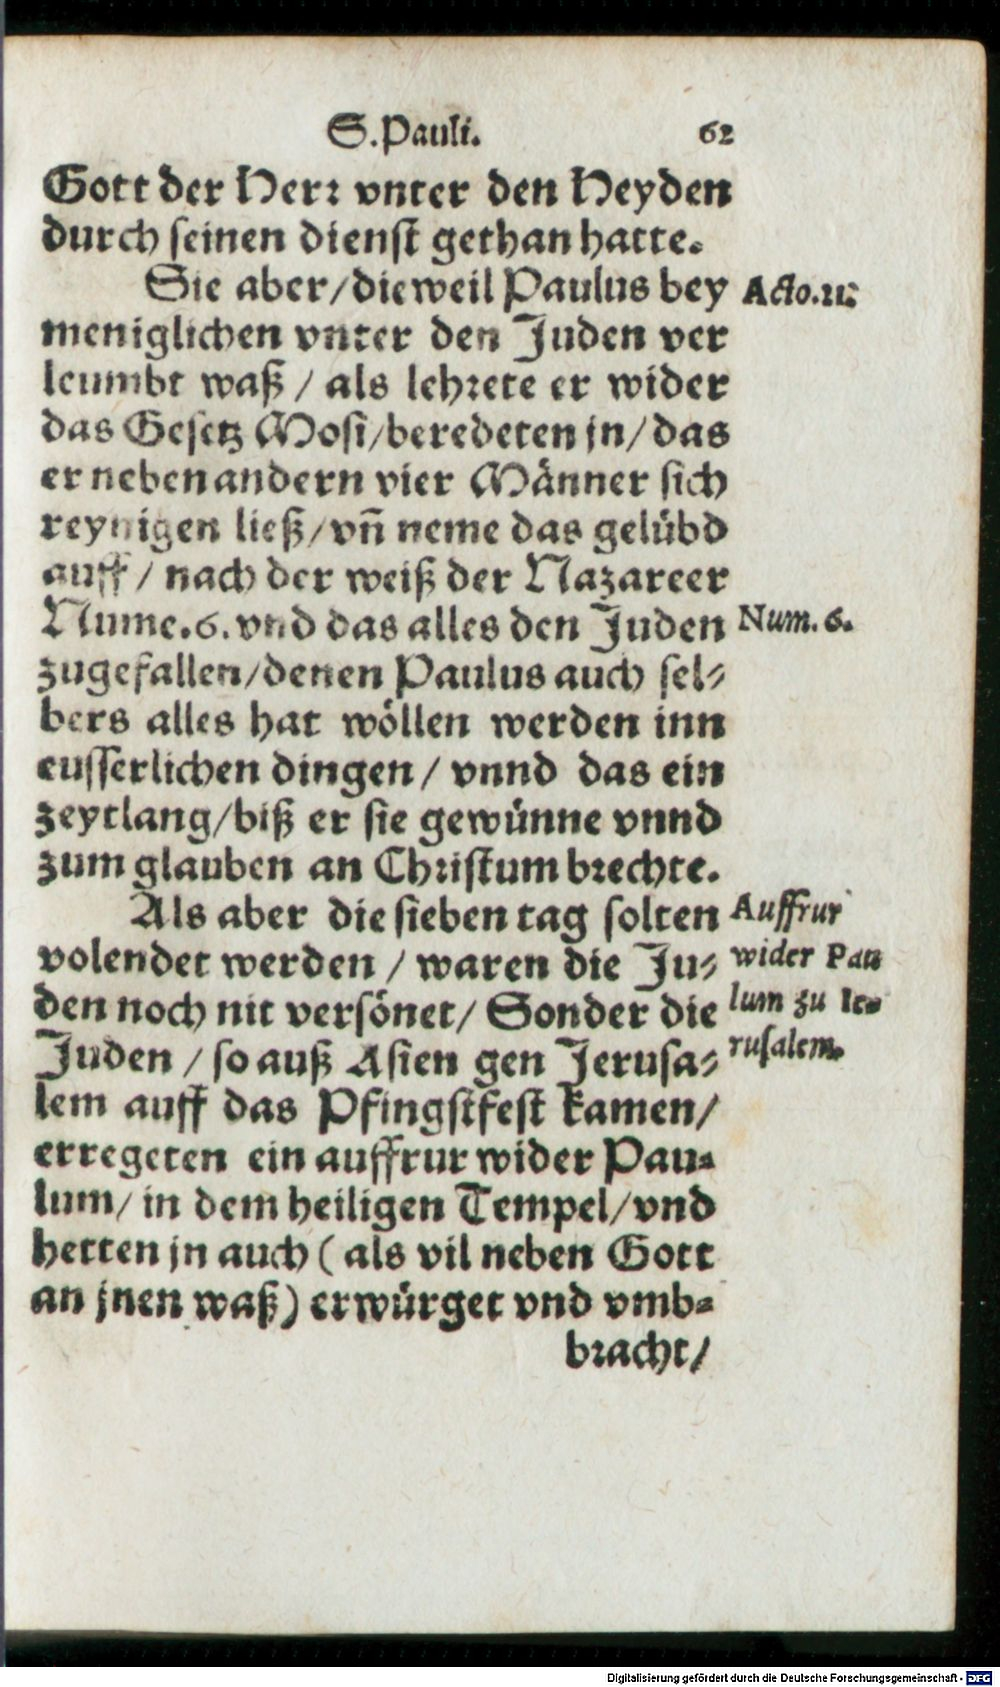 S. Pauli. 62
Gott der Herr vnter den Heyden
durch seinen dienst gethan hatte.
Sie aber/dieweil Paulus bey Acto.21:
meniglichen vnter den Juden ver
leumbt waß / als lehrete er wider
das Gesetz Mosi/beredeten jn/das
er neben andern vier Männer sich
reynigen ließ/vñ neme das gelübd
auff / nach der weiß der Nazareer
Nume.6. vnd das alles den Juden Num. 6.
zugefallen/denen Paulus auch sel-
bers alles hat wöllen werden inn
eusserlichen dingen / vnnd das ein
zeytlang/biß er sie gewünne vnnd
zum glauben an Christum brechte.
Als aber die sieben tag solten Auffrur
volendet werden / waren die Ju- wider Pau
den noch nit versönet/ Sonder die lum zu Ie-
Juden / so auß Asien gen Jerusa- rusalem.
lem auff das Pfingstfest kamen/
erregeten ein auffrur wider Pau-
lum/ in dem heiligen Tempel/vnd
hetten jn auch ( als vil neben Gott
an jnen waß) erwürget vnd vmb-
bracht/
Digitalisierung gefördert durch die Deutsche Forschungsgemeinschaft - DFG